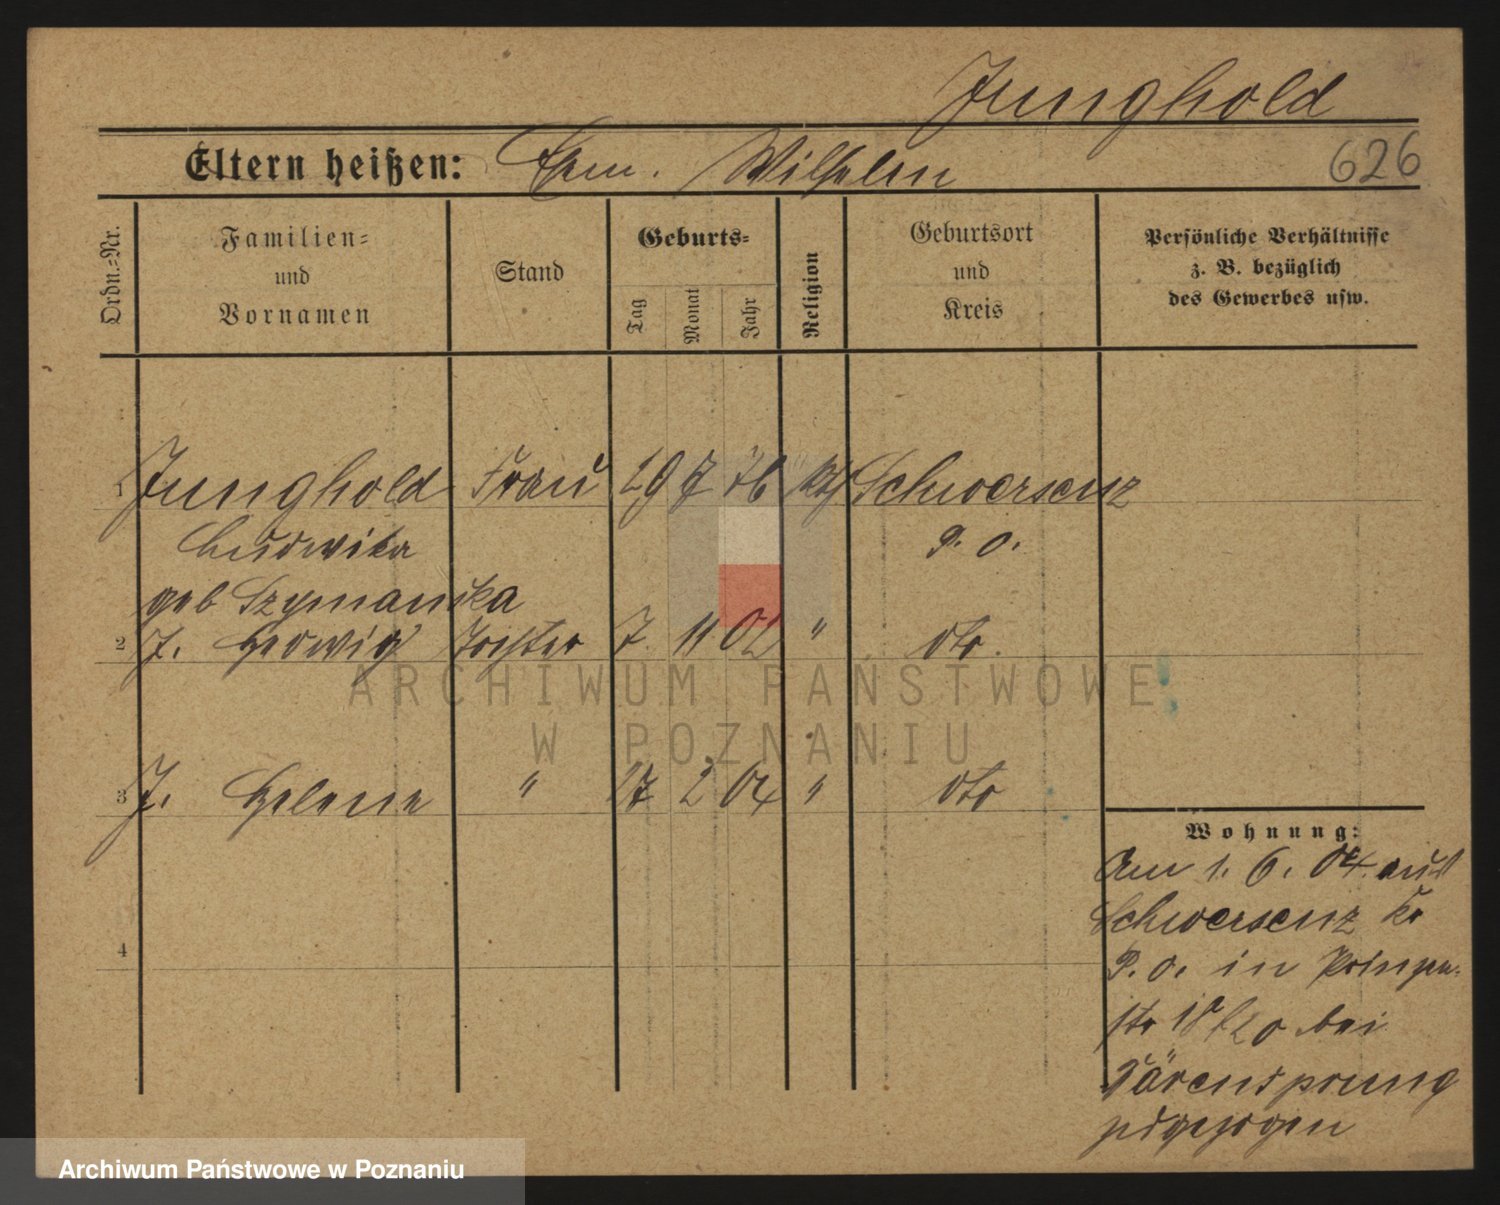 Junghold
Eltern heißen: Ehem. Wilhelm 626
Ordn.-Nr.
Familien-
und
Vornamen
Stand
Geburts-
Tag
Monat
Jahr
Religion
Geburtsort
und
Kreis
Persönliche Verhältnisse
z. B. bezüglich
des Gewerbes usw.
1 Junghold Frau 29 7 76 kth Schwersenz
Ludwika P. O.
geb Szymanska
2 J. Hedwig Tochter 7 11 02 " dto.
3 J. Helene " 17 2 04 " dto
4
Wohnung:
Am 1. 6. 04 aus
Schwersenz Kr
P. O. in Prinzen-
str 18/20 bei
Bärensprung
zugezogen
ARCHIWUM PAŃSTWOWE
W POZNANIU
Archiwum Państwowe w Poznaniu